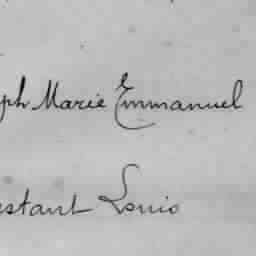 ph Marie Emmanuel
stant Louis